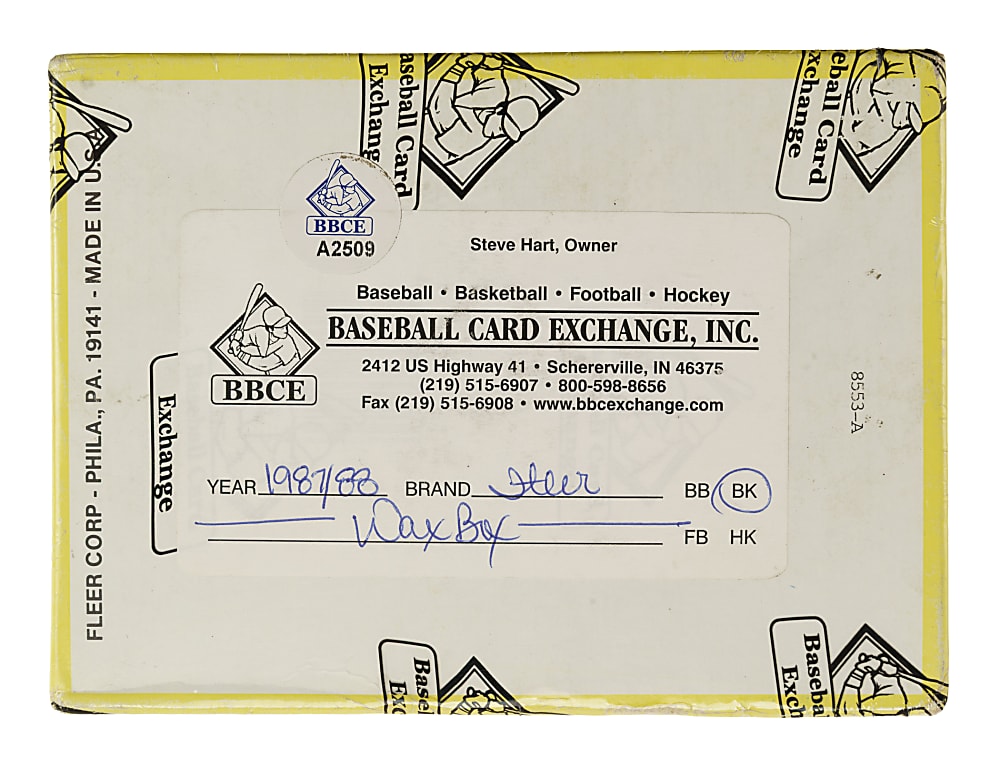 Baseball Card
Exchange
Baseball Card
Exchange
FLEER CORP - PHILA., PA. 19141 - MADE IN U.S.A.
BBCE
A2509
Steve Hart, Owner
Baseball • Basketball • Football • Hockey
BASEBALL CARD EXCHANGE, INC.
BBCE
2412 US Highway 41 • Schererville, IN 46375
(219) 515-6907 • 800-598-8656
Fax (219) 515-6908 • www.bbcexchange.com
8553-A
Exchange
YEAR 1987/88 BRAND Fleer BB BK
Wax Box FB HK
Basel
Exc
Baseba
Exch